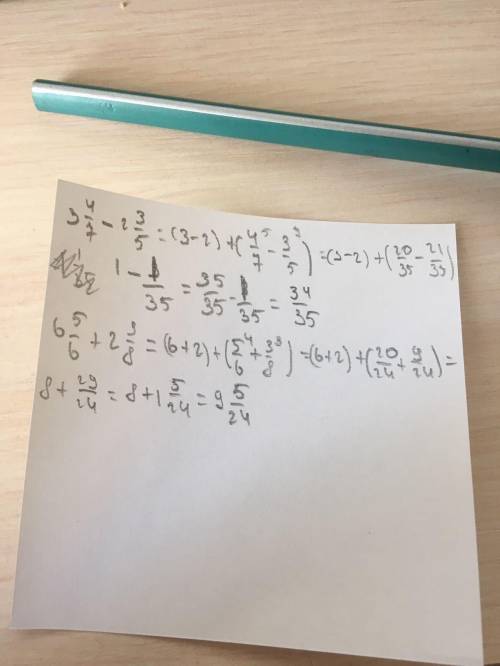 3 4/7 - 2 3/5 = (3-2) + (4/7 ⁵ - 3/5 ⁷) = (3-2) + (20/35 - 21/35)
1 - 1/35 = 35/35 - 1/35 = 34/35
6 5/6 + 2 3/8 = (6+2) + (5/6 ⁴ + 3/8 ³) = (6+2) + (20/24 + 9/24) =
8 + 29/24 = 8 + 1 5/24 = 9 5/24